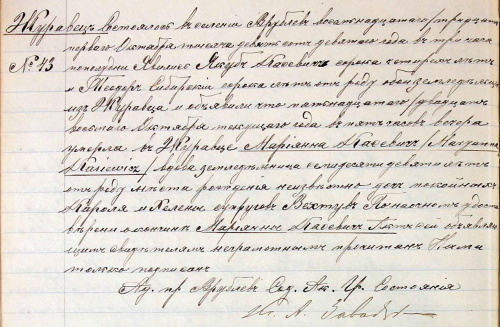 Журавецъ Состоялось въ селеніи Врублевъ восемнадцатаго /тридцать
№ 43 перваго Октября тысяча девятсотъ девятаго года въ три часа
пополудни Явились Якубъ Касевичъ сорока четырехъ лѣтъ
и Теодоръ Сибирскій сорока лѣтъ отъ роду оба земледѣльцы
изъ Журавца и объявили что пятнадцатаго /двадцать
восьмаго Октября текущаго года въ пять часовъ вечера
умерла въ Журавце Маріянна Касевичъ /Maryanna
Kasiewicz/ вдова земледѣльница семидесяти девяти лѣтъ
отъ роду мѣста рожденія неизвѣстно дочь покойныхъ
Кароля и Хелены супруговъ По настномъ удосто
вѣреніи о кончинѣ Маріянны Касевичъ Актъ сей объявляю
щимъ свидѣтелямъ неграмотнымъ прочитанъ Нами
только подписанъ
Сод. Ак. Гр. Состоянія